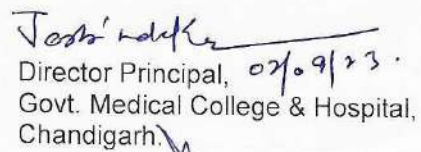 Director Principal, 02/09/23.
Govt. Medical College & Hospital,
Chandigarh.